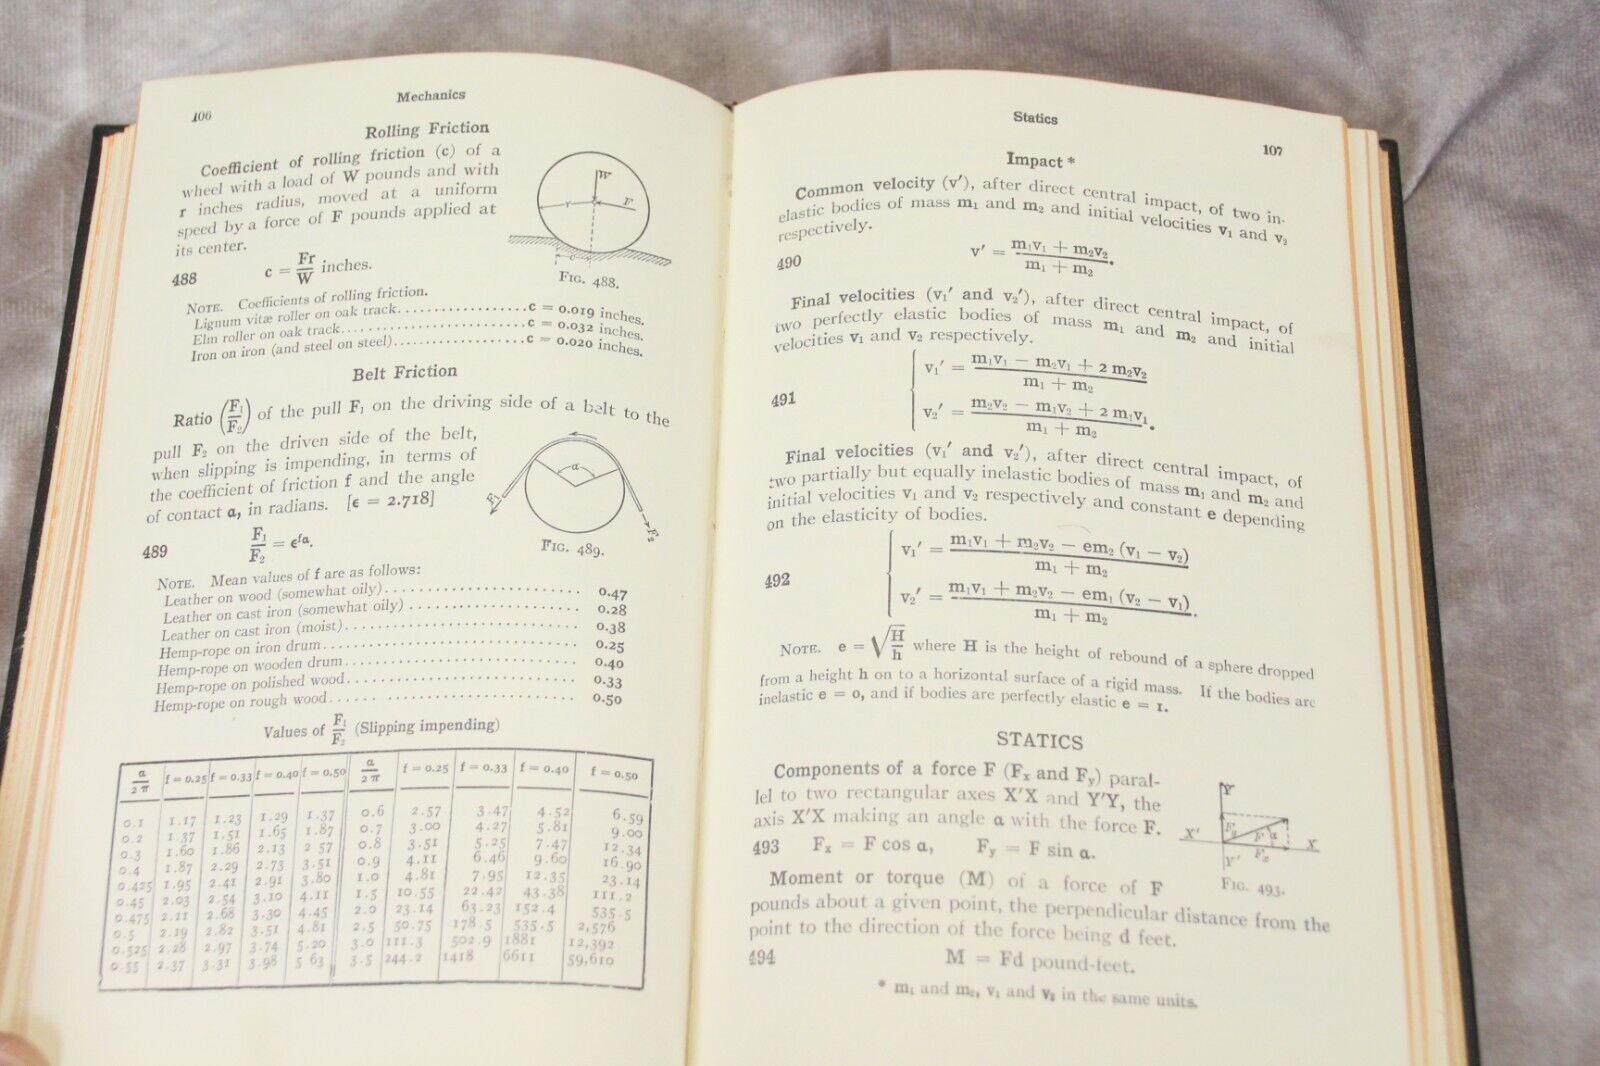 106
Mechanics
Rolling Friction
Coefficient of rolling friction (c) of a
wheel with a load of W pounds and with
r inches radius, moved at a uniform
speed by a force of F pounds applied at
its center.
W
r
F
c
FIG. 488.
488 c = Fr/W inches.
NOTE. Coefficients of rolling friction.
Lignum vitæ roller on oak track..................c = 0.019 inches.
Elm roller on oak track..........................c = 0.032 inches.
Iron on iron (and steel on steel)..................c = 0.020 inches.
Belt Friction
Ratio (F₁/F₂) of the pull F₁ on the driving side of a belt to the
pull F₂ on the driven side of the belt,
when slipping is impending, in terms of
the coefficient of friction f and the angle
of contact α, in radians. [ϵ = 2.718]
α
F₁
F₂
FIG. 489.
489 F₁/F₂ = ϵ^fα.
NOTE. Mean values of f are as follows:
Leather on wood (somewhat oily)......................... 0.47
Leather on cast iron (somewhat oily)..................... 0.28
Leather on cast iron (moist)............................. 0.38
Hemp-rope on iron drum................................ 0.25
Hemp-rope on wooden drum............................. 0.40
Hemp-rope on polished wood............................ 0.33
Hemp-rope on rough wood...... ........................ 0.50
Values of F₁/F₂ (Slipping impending)
α/2π f = 0.25 f = 0.33 f = 0.40 f = 0.50 α/2π f = 0.25 f = 0.33 f = 0.40 f = 0.50
0.1 1.17 1.23 1.29 1.37 0.6 2.57 3.47 4.52 6.59
0.2 1.37 1.51 1.65 1.87 0.7 3.00 4.27 5.81 9.00
0.3 1.60 1.86 2.13 2 57 0.8 3.51 5.25 7.47 12.34
0.4 1.87 2.29 2.73 3.51 0.9 4.11 6.46 9.60 16.90
0.425 1.95 2.41 2.91 3.80 1.0 4.81 7.95 12.35 23.14
0.45 2.03 2.54 3.10 4.11 1.5 10.55 22.42 43.38 111.2
0.475 2.11 2.68 3.30 4.45 2.0 23.14 63.23 152.4 535.5
0.5 2.19 2.82 3.51 4.81 2.5 50.75 178.5 535.5 2,576
0.525 2.28 2.97 3.74 5.20 3.0 111.3 502.9 1881 12,392
0.55 2.37 3.31 3.98 5 63 3.5 244.2 1418 6611 59,610
Statics
107
Impact *
Common velocity (v′), after direct central impact, of two in-
elastic bodies of mass m₁ and m₂ and initial velocities v₁ and v₂
respectively.
490 v′ = (m₁v₁ + m₂v₂)/(m₁ + m₂).
Final velocities (v₁′ and v₂′), after direct central impact, of
two perfectly elastic bodies of mass m₁ and m₂ and initial
velocities v₁ and v₂ respectively.
v₁′ = (m₁v₁ − m₂v₁ + 2 m₂v₂)/(m₁ + m₂)
491
v₂′ = (m₂v₂ − m₁v₂ + 2 m₁v₁)/(m₁ + m₂).
Final velocities (v₁′ and v₂′), after direct central impact, of
two partially but equally inelastic bodies of mass m₁ and m₂ and
initial velocities v₁ and v₂ respectively and constant e depending
on the elasticity of bodies.
v₁′ = (m₁v₁ + m₂v₂ − em₂ (v₁ − v₂))/(m₁ + m₂)
492
v₂′ = (m₁v₁ + m₂v₂ − em₁ (v₂ − v₁))/(m₁ + m₂).
NOTE. e = √(H/h) where H is the height of rebound of a sphere dropped
from a height h on to a horizontal surface of a rigid mass. If the bodies are
inelastic e = 0, and if bodies are perfectly elastic e = 1.
STATICS
Components of a force F (Fₓ and Fᵧ) paral-
lel to two rectangular axes X′X and Y′Y, the
axis X′X making an angle α with the force F.
493 Fₓ = F cos α, Fᵧ = F sin α.
Y
X′
X
Y′
F
α
Fₓ
FIG. 493.
Moment or torque (M) of a force of F
pounds about a given point, the perpendicular distance from the
point to the direction of the force being d feet.
494 M = Fd pound-feet.
* m₁ and m₂, v₁ and v₂ in the same units.